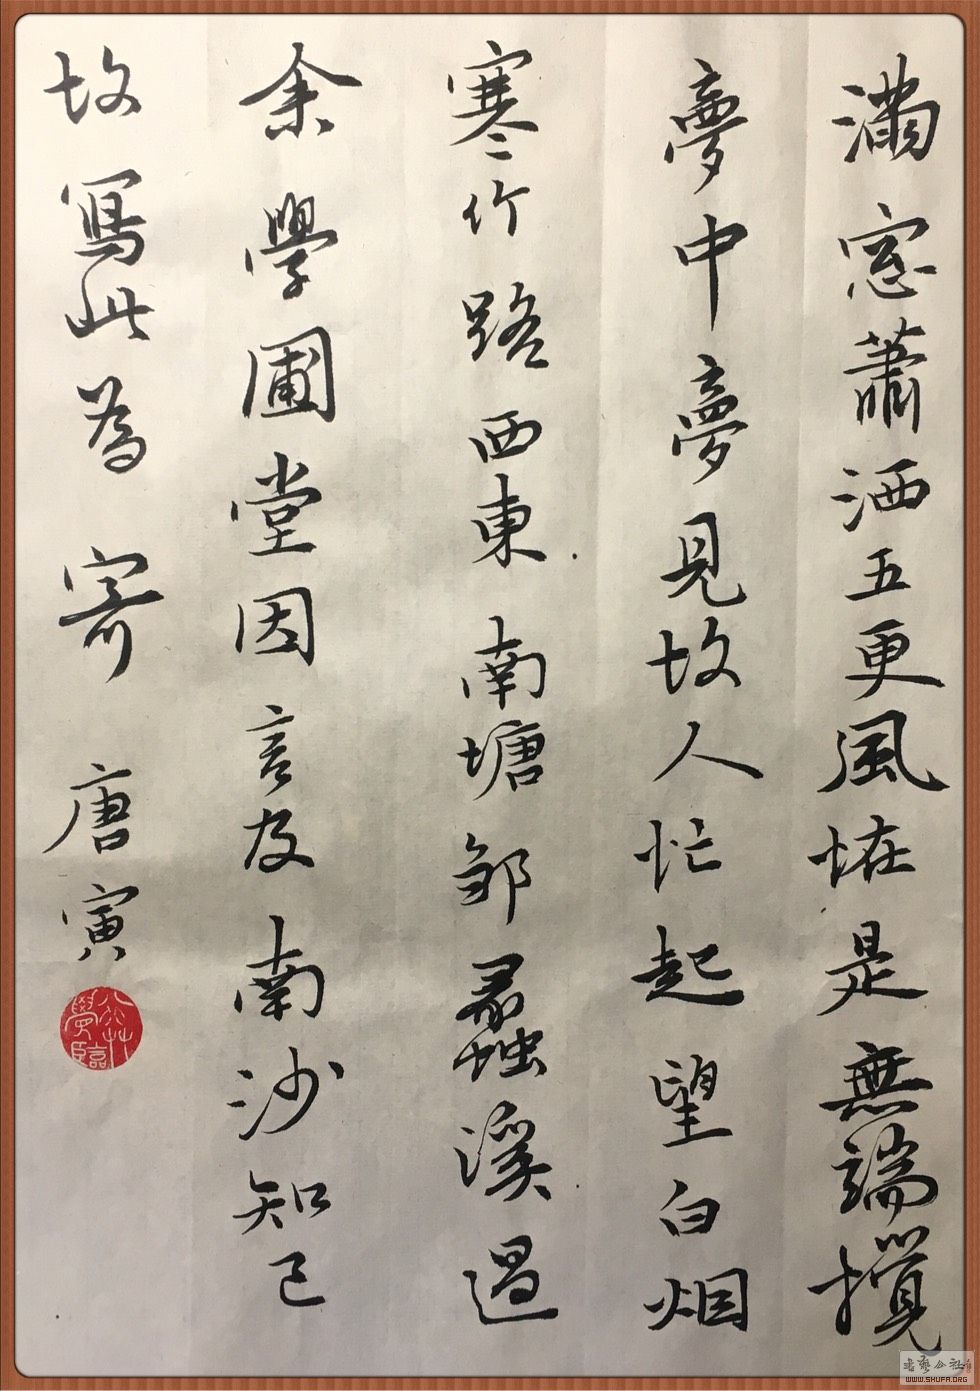 滿窓蕭洒五更風恠是無端攪
夢中夢見故人忙起望白烟
寒竹路西東南塘邹蠡溪過
余學圃堂因言及南沙知己
故寫此為寄唐寅
書藝公社
WWW.SHUFA.ORG